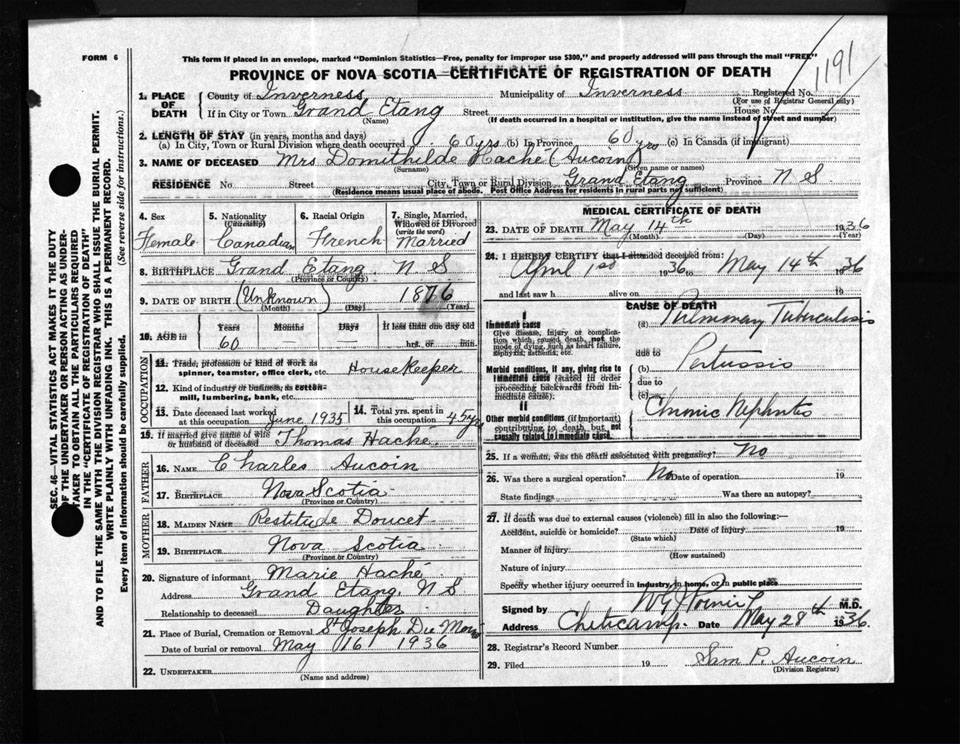 FORM 6
This form if placed in an envelope, marked "Dominion Statistics—Free, penalty for improper use $300," and properly addressed will pass through the mail "FREE"
PROVINCE OF NOVA SCOTIA—CERTIFICATE OF REGISTRATION OF DEATH
1191
1. PLACE OF DEATH County of Inverness Municipality of Inverness Registered No.
(For use of Registrar General only)
If in City or Town Grand Etang Street House No.
(Name) (If death occurred in a hospital or institution, give the name instead of street and number)
2. LENGTH OF STAY (in years, months and days)
(a) In City, Town or Rural Division where death occurred 60 yrs (b) In Province 60 yrs (c) In Canada (if immigrant)
3. NAME OF DECEASED Mrs Domithilde Haché (Aucoin)
(Surname) (Given name or names)
RESIDENCE No. Street City, Town or Rural Division Grand Etang Province N S
(Residence means usual place of abode. Post Office Address for residents in rural parts not sufficient)
4. Sex 5. Nationality (Citizenship) 6. Racial Origin 7. Single, Married, Widowed or Divorced (write the word)
Female Canadian French Married
8. BIRTHPLACE Grand Etang N S
(Province or Country)
9. DATE OF BIRTH (Unknown) 1876
(Month) (Day) (Year)
10. AGE in Years Months Days If less than one day old
60 — — hrs. or min.
OCCUPATION
11. Trade, profession or kind of work as spinner, teamster, office clerk, etc. Housekeeper
12. Kind of industry or business, as cotton-mill, lumbering, bank, etc.
13. Date deceased last worked at this occupation June 1935 14. Total yrs. spent in this occupation 45 yrs
15. If married give name of wife or husband of deceased Thomas Haché
FATHER
16. NAME Charles Aucoin
17. BIRTHPLACE Nova Scotia
(Province or Country)
MOTHER
18. MAIDEN NAME Restitude Doucet
19. BIRTHPLACE Nova Scotia
(Province or Country)
20. Signature of informant Marie Haché
Address Grand Etang N S
Relationship to deceased Daughter
21. Place of Burial, Cremation or Removal St Joseph Du Moine
Date of burial or removal May 16 1936
22. UNDERTAKER
(Name and address)
MEDICAL CERTIFICATE OF DEATH
23. DATE OF DEATH May 14th 1936
(Month) (Day) (Year)
24. I HEREBY CERTIFY that I attended deceased from:
April 1st 1936 to May 14th 1936
and last saw h alive on 19
CAUSE OF DEATH
I
Immediate cause
Give disease, injury or complication which caused death, not the mode of dying, such as heart failure, asphyxia, asthenia, etc.
(a) Pulmonary Tuberculosis
due to
Morbid conditions, if any, giving rise to immediate cause (stated in order proceeding backwards from immediate cause).
(b) Pertussis
due to
(c)
II
Other morbid conditions (if important) contributing to death but not causally related to immediate cause.
Chronic Nephritis
25. If a woman, was the death associated with pregnancy? No
26. Was there a surgical operation? No Date of operation 19
State findings Was there an autopsy?
27. If death was due to external causes (violence) fill in also the following:—
Accident, suicide or homicide? Date of injury 19
(State which)
Manner of injury
(How sustained)
Nature of injury
Specify whether injury occurred in industry, in home, or in public place
Signed by M.D.
Address Cheticamp Date May 28th 1936
28. Registrar's Record Number
29. Filed 19 Sam P. Aucoin
(Division Registrar)
SEC. 46—VITAL STATISTICS ACT MAKES IT THE DUTY
OF THE UNDERTAKER OR PERSON ACTING AS UNDERTAKER
TO OBTAIN ALL THE PARTICULARS REQUIRED
IN THE "CERTIFICATE OF REGISTRATION OF DEATH"
AND TO FILE THE SAME WITH THE DIVISION REGISTRAR WHO SHALL ISSUE THE BURIAL PERMIT.
WRITE PLAINLY WITH UNFADING INK. THIS IS A PERMANENT RECORD.
Every item of information should be carefully supplied. (See reverse side for instructions.)